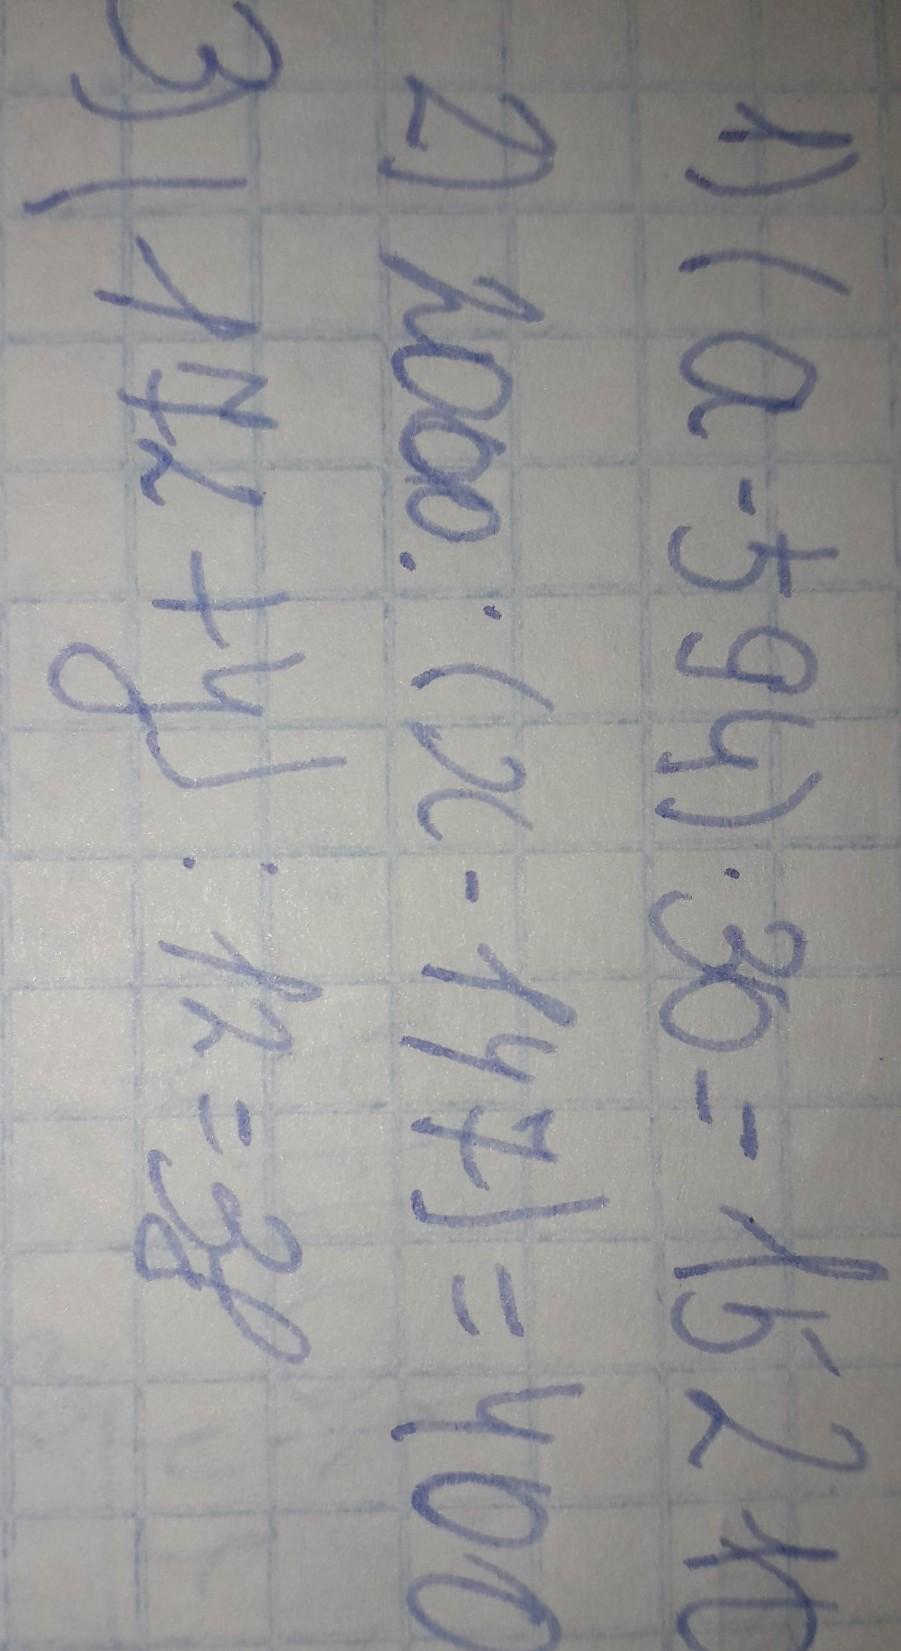 1) (a - 594) · 30 = 15210
2) 2000 : (x - 147) = 400
3) (172 + y) : 12 = 38